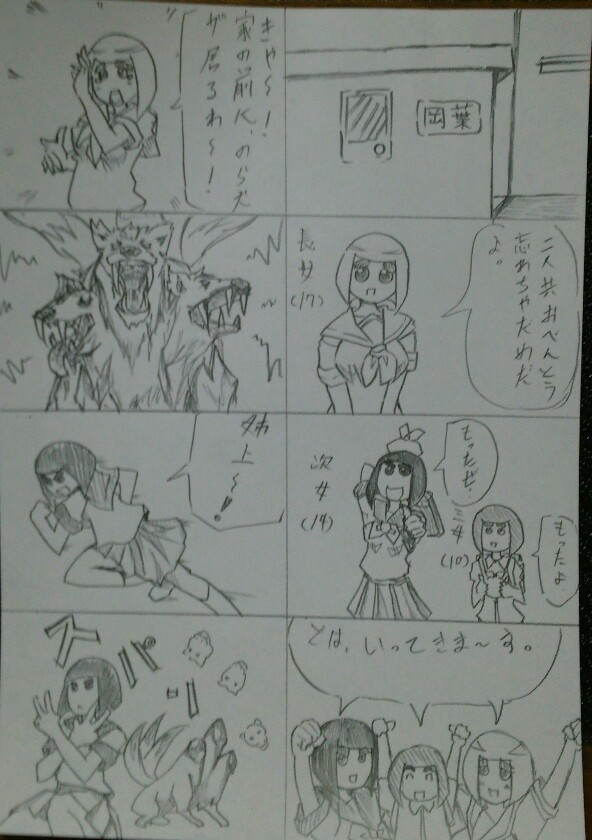 岡葉
二人共おべんとう
忘れちゃだめだ
よ。
長女
(17)
もったぜ!
次女
(14)
もったよ
三女
(10)
では、いってきま～す。
きゃ～!
家の前に、のら犬
が居るわ～!
姉上～!!
ズバババッ